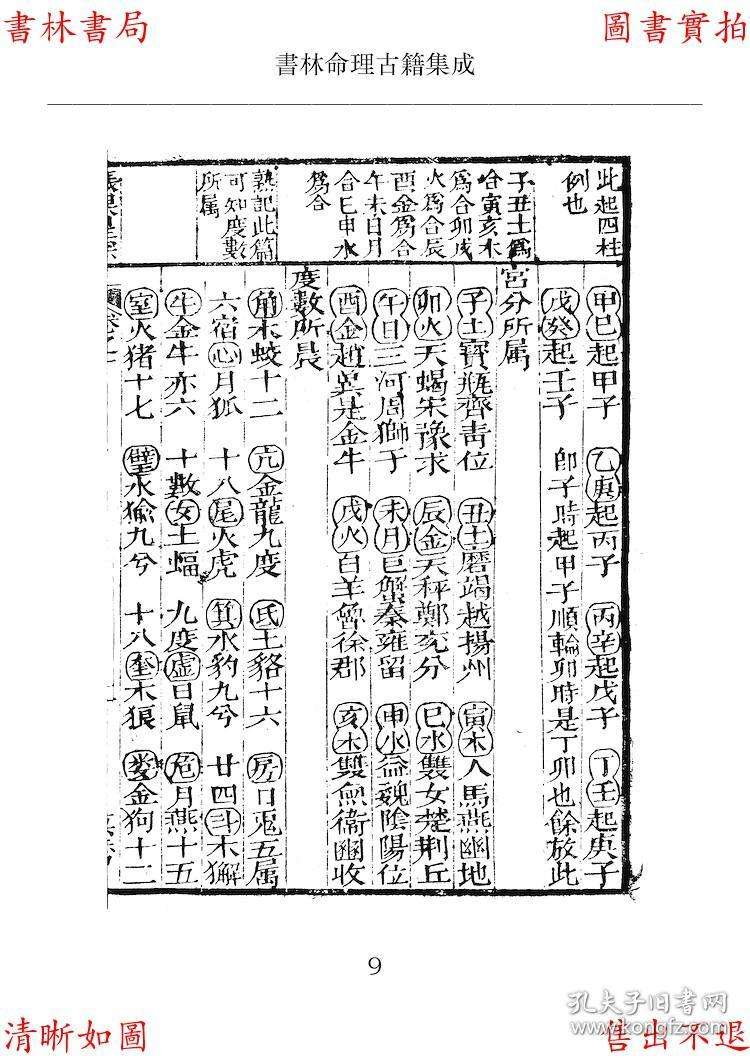 書林書局
圖書實拍
書林命理古籍集成
此起四柱
例也
子丑土爲
合寅亥木
爲合卯戌
火爲合辰
酉金爲合
午未日月
合巳申水
爲合
熟記此篇
可知度數
所属
甲己起甲子 乙庚起丙子 丙辛起戊子 丁壬起庚子
戊癸起壬子 卽子時起甲子順輪卯時是丁卯也餘放此
宮分所属
子土寶瓶齊青位 丑土磨竭越揚州 寅木人馬燕幽地
卯火天蝎宋豫求 辰金天秤鄭兗分 巳水雙女楚荆丘
午日三河周獅子 未月巨蟹秦雍留 申水益魏陰陽位
酉金趙冀是金牛 戌火白羊魯徐郡 亥木雙魚衛幽收
度數所
角木蛟十二 亢金龍九度 氐土貉十六 房日兎五属
六宿心月狐 十八尾火虎 箕水豹九兮 廿四斗木獬
牛金牛亦六 十數女土蝠 九度虛日鼠 危月燕十五
室火猪十七 璧水㺄九兮 十八奎木狼 婁金狗十二
9
清晰如圖
售出不退
孔夫子旧書网
www.kongfz.com